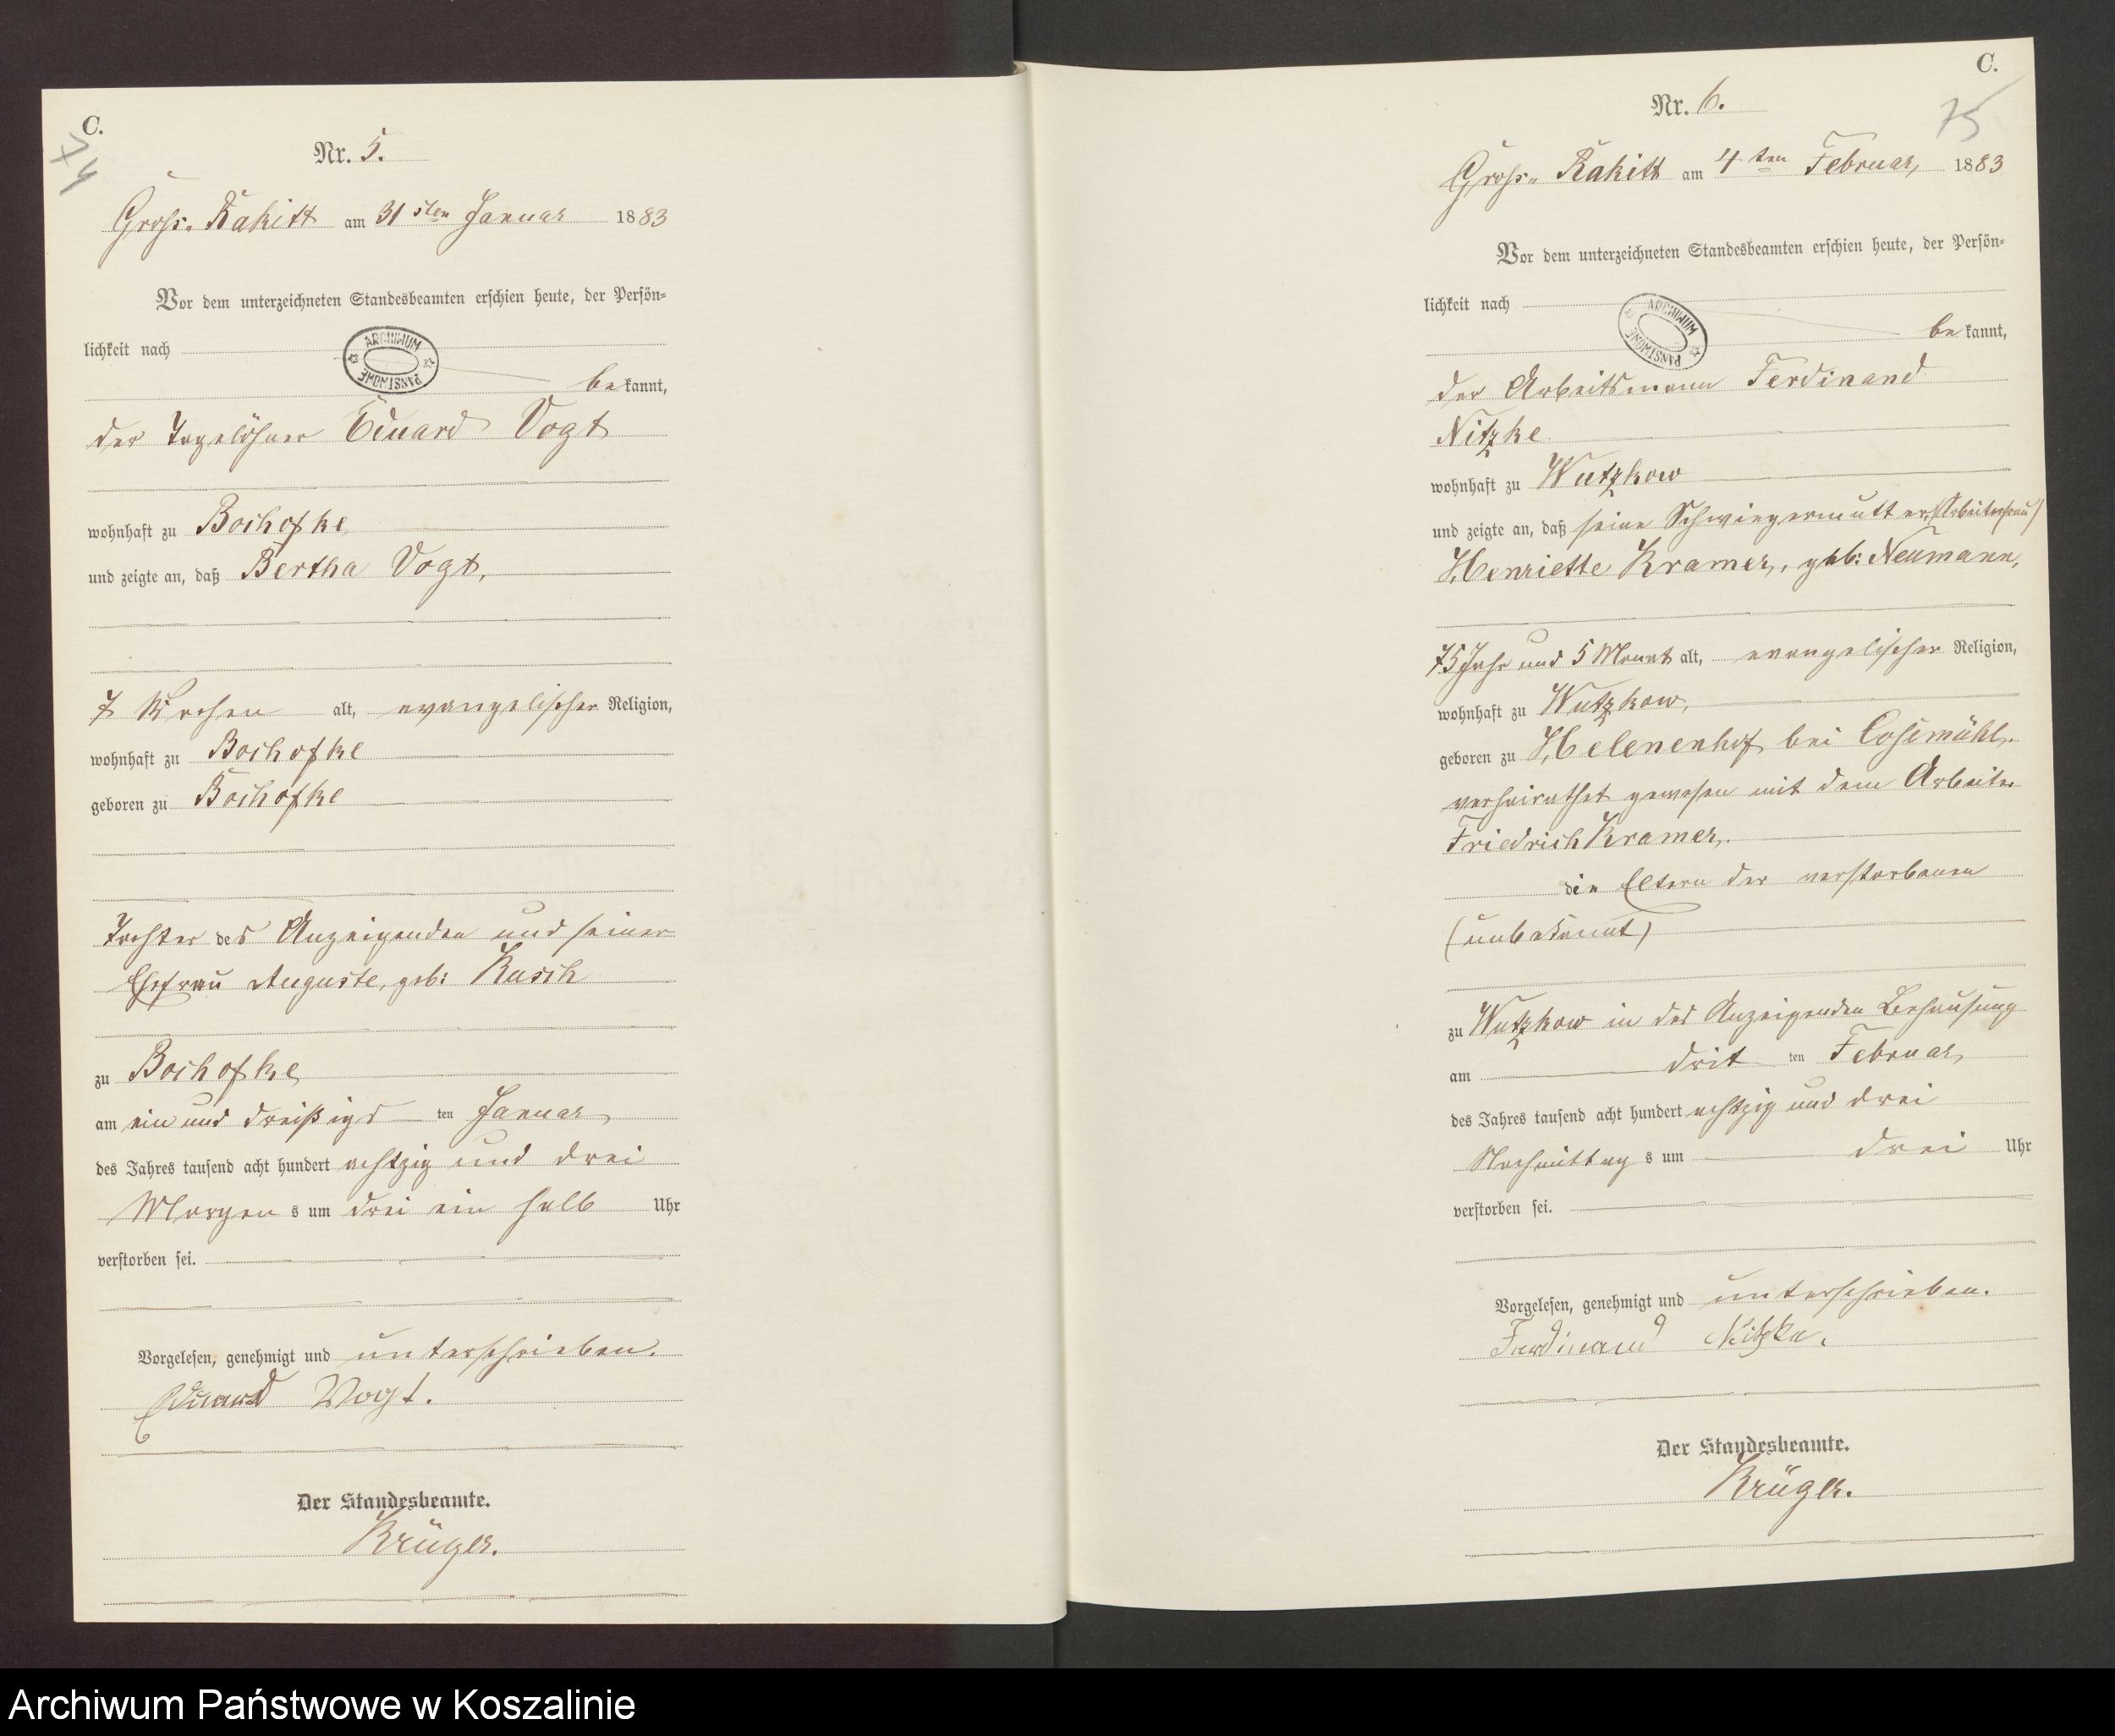 C.
74
Nr. 5.
Gross. Rakitt am 31 sten Januar 1883
Vor dem unterzeichneten Standesbeamten erschien heute, der Persön-
lichkeit nach
ARCHIWUM PAŃSTWOWE
bekannt,
der Tagelöhner Eduard Vogt
wohnhaft zu Bochofke
und zeigte an, daß Bertha Vogt,
7 Wochen alt, evangelischer Religion,
wohnhaft zu Bochofke
geboren zu Bochofke
Tochter des Anzeigenden und seiner
Ehefrau Auguste, geb: Kusch
zu Bochofke
am ein und dreißigs ten Januar
des Jahres tausend acht hundert achtzig und drei
Morgens um drei ein halb Uhr
verstorben sei.
Vorgelesen, genehmigt und unterschrieben.
Eduard Vogt.
Der Standesbeamte.
Krüger.
C.
75
Nr. 6.
Gross. Rakitt am 4 ten Februar, 1883
Vor dem unterzeichneten Standesbeamten erschien heute, der Persön-
lichkeit nach
ARCHIWUM PAŃSTWOWE
bekannt,
der Arbeitsmann Ferdinand
Nitzke
wohnhaft zu Wutzkow
und zeigte an, daß seine Schwiegermutter, (Arbeiterfrau)
Henriette Kramer, geb: Neumann,
75 Jahr und 5 Monat alt, evangelischer Religion,
wohnhaft zu Wutzkow,
geboren zu Helenenhof bei Cosemühl,
verheirathet gewesen mit dem Arbeiter
Friedrich Kramer,
die Eltern der verstorbenen
(unbekannt)
zu Wutzkow in des Anzeigenden Behausung
am drit ten Februar,
des Jahres tausend acht hundert achtzig und drei
Nachmittags um drei Uhr
verstorben sei.
Vorgelesen, genehmigt und unterschrieben.
Ferdinand Nitzke.
Der Standesbeamte.
Krüger.
Archiwum Państwowe w Koszalinie